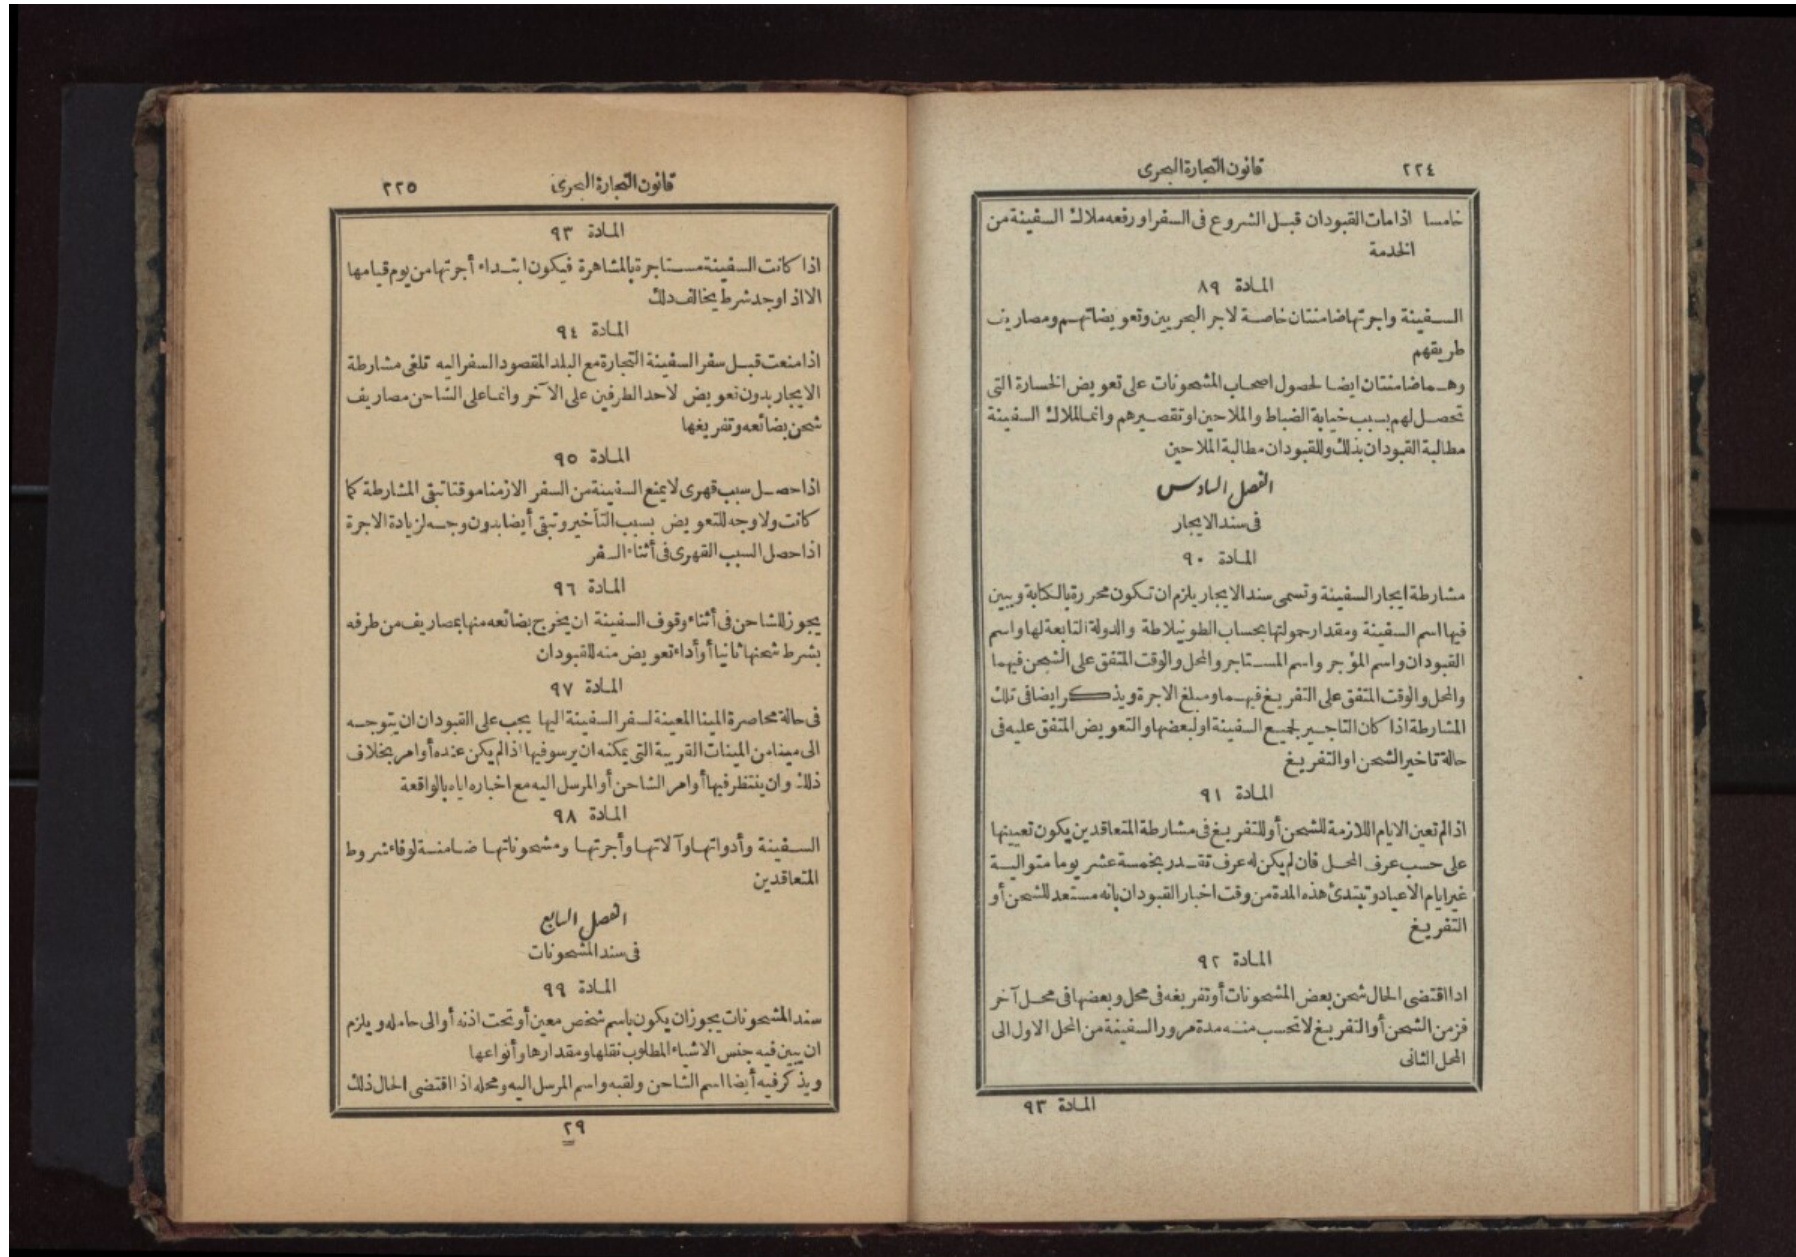 ٢٢٤
قانون التجارة البحرى
خامسا اذا مات القبودان قبل الشروع فى السفر او رفعه ملاك السفينة من
الخدمة
المادة ٨٩
السفينة واجرتها ضامنتان خاصة لاجر البحريين وتعويضاتهم ومصاريف
طريقهم
وهما ضامنتان ايضا لحصول اصحاب المشحونات على تعويض الخسارة التى
تحصل لهم بسبب خيانة الضباط والملاحين او تقصيرهم وانما لملاك السفينة
مطالبة القبودان بذلك وللقبودان مطالبة الملاحين
الفصل السادس
فى سند الايجار
المادة ٩٠
مشارطة ايجار السفينة وتسمى سند الايجار يلزم ان تكون محررة بالكتابة ويبين
فيها اسم السفينة ومقدار حمولتها بحساب الطونيلاطة والدولة التابعة لها واسم
القبودان واسم المؤجر واسم المستاجر والمحل والوقت المتفق على الشحن فيهما
والمحل والوقت المتفق على التفريغ فيهما ومبلغ الاجرة ويذكر ايضا فى تلك
المشارطة اذا كان التاجير لجميع السفينة او لبعضها والتعويض المتفق عليه فى
حالة تاخير الشحن او التفريغ
المادة ٩١
اذا لم تعين الايام اللازمة للشحن أو للتفريغ فى مشارطة المتعاقدين يكون تعيينها
على حسب عرف المحل فان لم يكن له عرف تقدر بخمسة عشر يوما متوالية
غير ايام الاعياد وتبتدئ هذه المدة من وقت اخبار القبودان بانه مستعد للشحن أو
التفريغ
المادة ٩٢
ادا اقتضى الحال شحن بعض المشحونات أو تفريغه فى محل وبعضها فى محل آخر
فزمن الشحن أو التفريغ لا تحسب منه مدة مرور السفينة من المحل الاول الى
المحل الثانى
المادة ٩٣
قانون التجارة البحرى
٢٢٥
المادة ٩٣
اذا كانت السفينة مستاجرة بالمشاهرة فيكون ابتداء أجرتها من يوم قيامها
الا اذا وجد شرط يخالف دلك
المادة ٩٤
اذا منعت قبل سفر السفينة التجارة مع البلد المقصود السفر اليه تلغى مشارطة
الايجار بدون تعويض لاحد الطرفين على الآخر وانما على الشاحن مصاريف
شحن بضائعه وتفريغها
المادة ٩٥
اذا حصل سبب قهرى لا يمنع السفينة من السفر الا زمنا موقتا تبقى المشارطة كما
كانت ولا وجه للتعويض بسبب التأخير وتبقى أيضا بدون وجه لزيادة الاجرة
اذا حصل السبب القهرى فى أثناء السفر
المادة ٩٦
يجوز للشاحن فى أثناء وقوف السفينة ان يخرج بضائعه منها بمصاريف من طرفه
بشرط شحنها ثانيا أو أداء تعويض منه للقبودان
المادة ٩٧
فى حالة محاصرة المينا المعينة لسفر السفينة اليها يجب على القبودان ان يتوجه
الى مينا من المينات القريبة التى يمكنه ان يرسو فيها اذا لم يكن عنده أوامر بخلاف
ذلك وان ينتظر فيها أوامر الشاحن أو المرسل اليه مع اخباره اياه بالواقعة
المادة ٩٨
السفينة وأدواتها وآلاتها وأجرتها ومشحوناتها ضامنة لوفاء شروط
المتعاقدين
الفصل السابع
فى سند المشحونات
المادة ٩٩
سند المشحونات يجوز ان يكون باسم شخص معين أو تحت اذنه أو الى حامله ويلزم
ان يبين فيه جنس الاشياء المطلوب نقلها ومقدارها وأنواعها
ويذكر فيه أيضا اسم الشاحن ولقبه واسم المرسل اليه ومحله اذا اقتضى الحال ذلك
٢٩